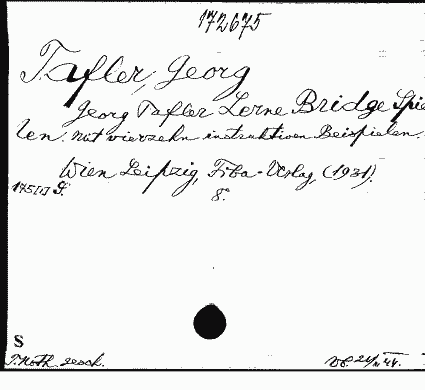 172675
Tafler, Georg
Georg Tafler Lerne Bridge Spie
len. Mit vierzehn instruktiven Beispielen.
Wien Leipzig, Fiba-Verlag, (1931).
175[1] S. 8°.
S
24/ 44.